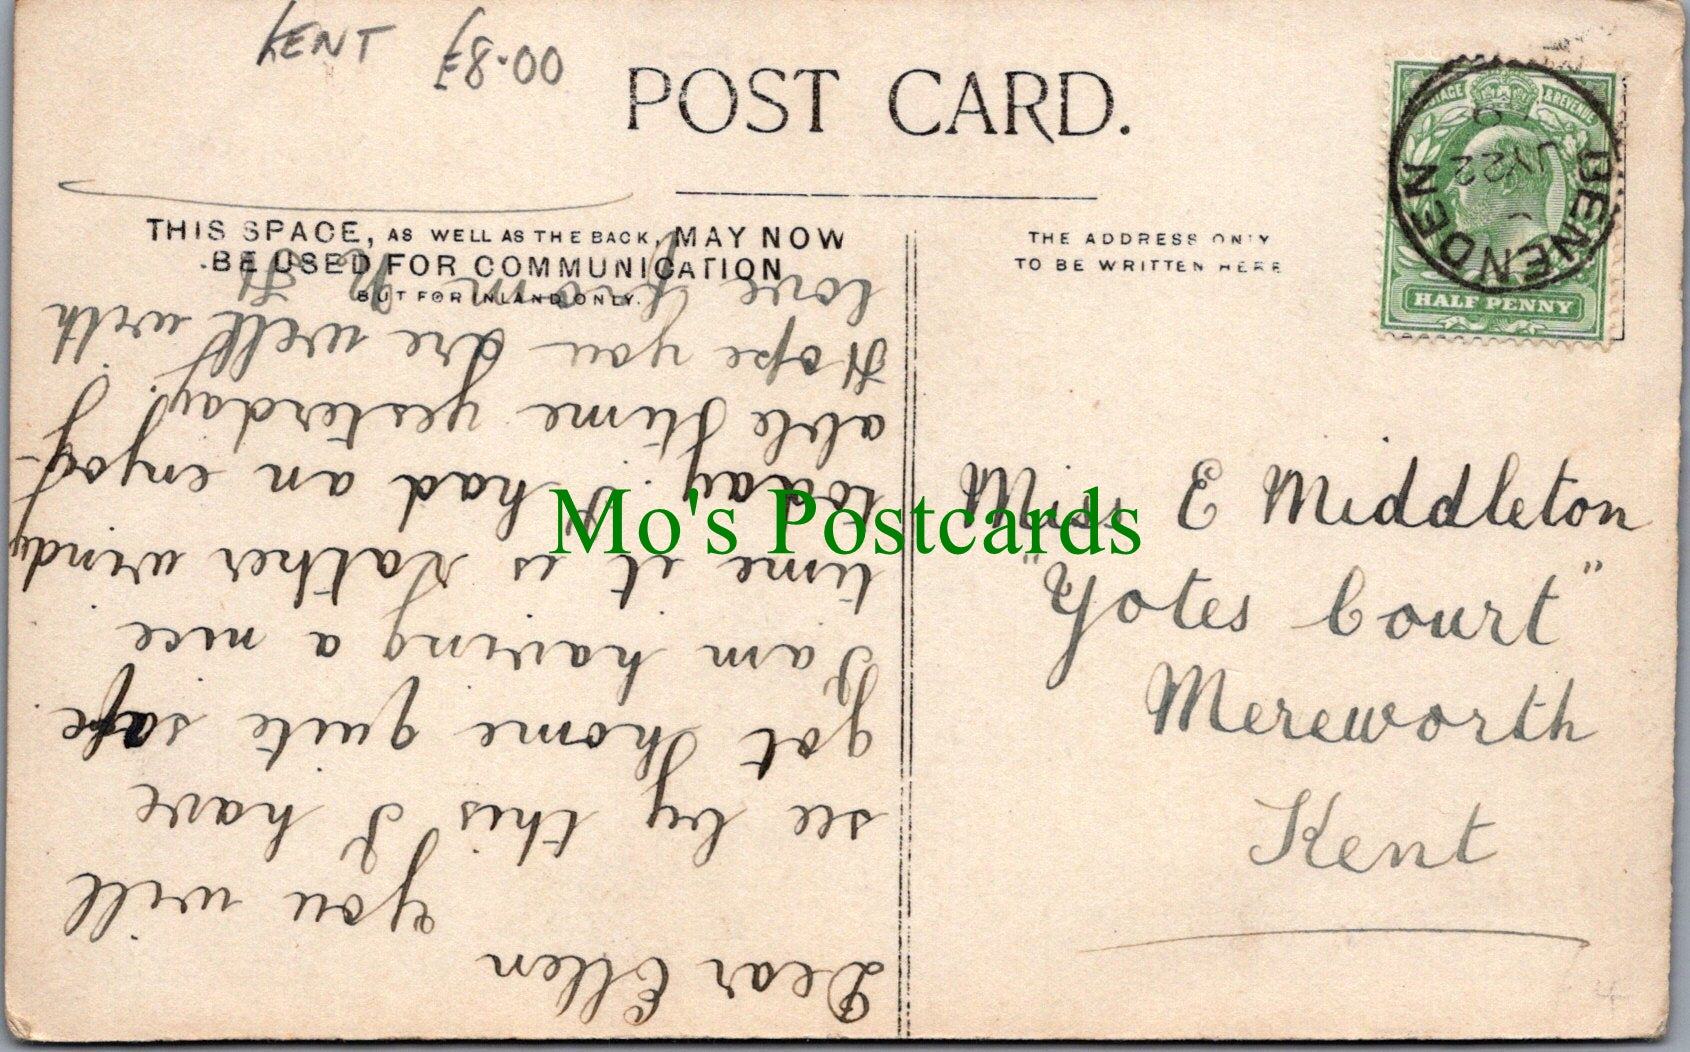 KENT £8.00
POST CARD.
THIS SPACE, AS WELL AS THE BACK, MAY NOW
BE USED FOR COMMUNICATION
BUT FOR INLAND ONLY.
THE ADDRESS ONLY
TO BE WRITTEN HERE
POSTAGE & REVENUE
HALF PENNY
BENENDEN
JY 22
Dear Ellen
you will
see by this I have
got home quite safe
I am having a nice
time it is rather windy
today. I had an enjoy-
able time yesterday.
Hope you are well with
love from
Miss E Middleton
"Yotes Court"
Mereworth
Kent
Mo's Postcards